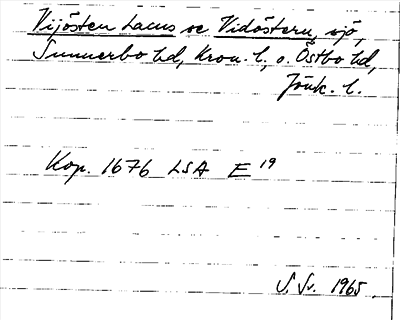 Vijösten Lacus se Vidöstern, sjö,
Sunnerbo hd, Kron. l., o. Östbo hd,
Jönk. l.
Kop. 1676 LSA E 19
S. Sv. 1965.